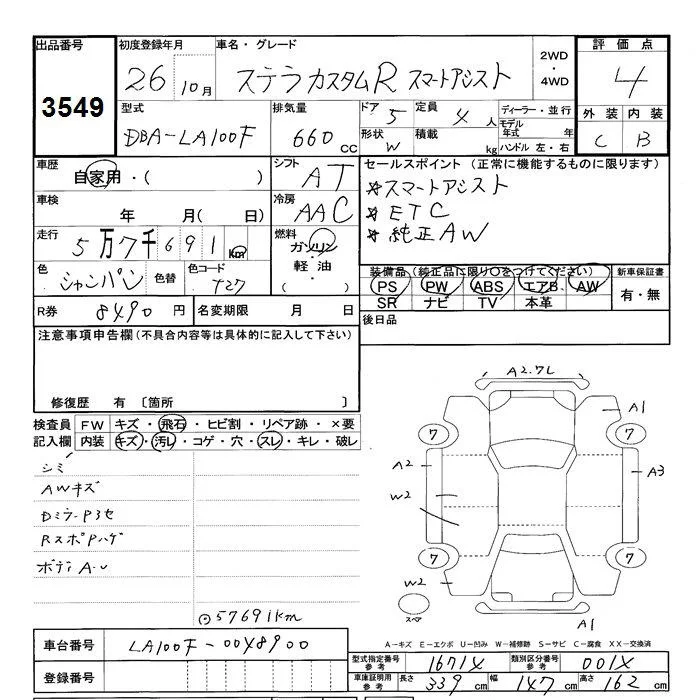 出品番号 初度登録年月 車名・グレード 2WD・4WD 評価点
3549 26 10月 ステラカスタムR スマートアシスト 4
型式 排気量 ドア 5 定員 4人 ディーラー・並行 外装 内装
DBA-LA100F 660cc 形状 W 積載 kg モデル年式 年 ハンドル 左・右 C B
車歴 自家用・( ) シフト AT セールスポイント (正常に機能するものに限ります)
車検 年 月( 日) 冷房 AAC ☆スマートアシスト
☆ETC
走行 5万7千691km 燃料 ガソリン・軽油・( ) ☆純正AW
色 シャンパン 色替 色コード T27 装備品(純正品に限り○をつけてください) 新車保証書
PS PW ABS エアB AW 有・無
SR ナビ TV 本革
R券 8490円 名変期限 月 日 後日品
注意事項申告欄(不具合内容等は具体的に記入して下さい)
修復歴 有 〔箇所 〕
検査員記入欄 FW キズ・飛石・ヒビ割・リペア跡・×要
内装 キズ・汚レ・コゲ・穴・スレ・キレ・破レ
シミ
AWキズ
DミラーP3セ
RスポPハゲ
ボディA・U
⊙57691km
A2.7L
A1
7 7
A2 A3
W2
7 7
W2
スペア
A1
A-キズ E-エクボ U-凹み W-補修跡 S-サビ C-腐食 XX-交換済
車台番号 LA100F-00X8900
登録番号
型式指定番号参考 1671X 類別区分番号参考 001X
車庫証明用参考 長さ 339cm 幅 147cm 高さ 162cm